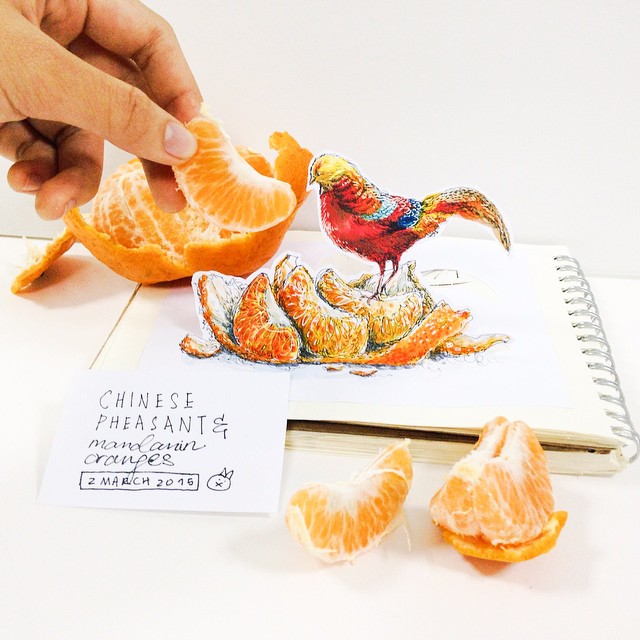 CHINESE
PHEASANT &
mandarin
oranges
2 MARCH 2015